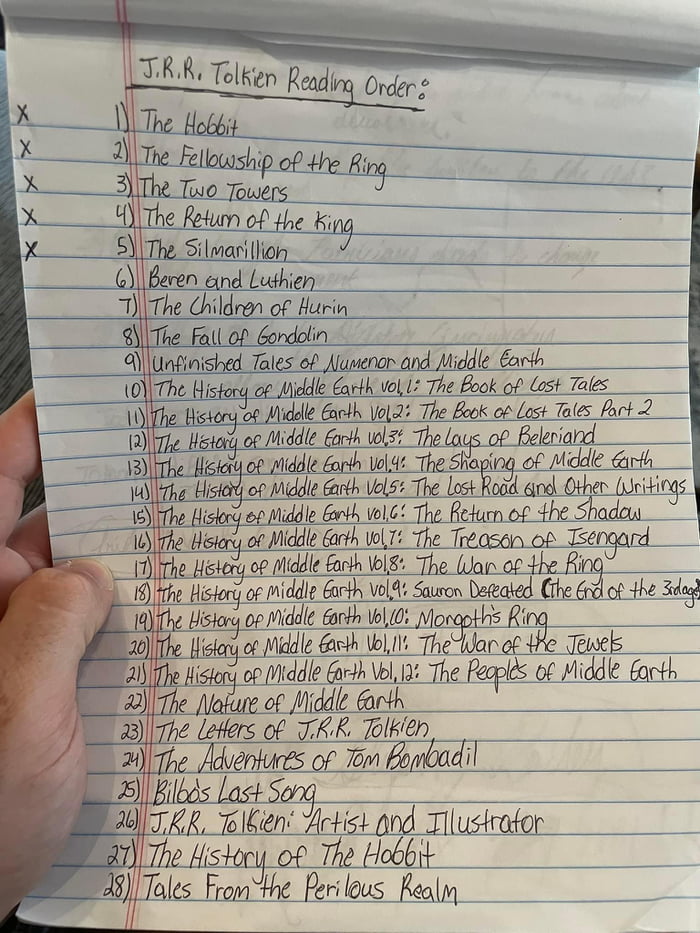 J.R.R. Tolkien Reading Order:
X 1) The Hobbit
X 2) The Fellowship of the Ring
X 3) The Two Towers
X 4) The Return of the King
X 5) The Silmarillion
6) Beren and Luthien
7) The Children of Hurin
8) The Fall of Gondolin
9) Unfinished Tales of Numenor and Middle Earth
10) The History of Middle Earth vol,1: The Book of Lost Tales
11) The History of Middle Earth Vol,2: The Book of Lost Tales Part 2
12) The History of Middle Earth vol,3: The Lays of Beleriand
13) The History of Middle Earth Vol,4: The Shaping of Middle Earth
14) The History of Middle Earth Vol,5: The Lost Road and Other Writings
15) The History of Middle Earth vol,6: The Return of the Shadow
16) The History of Middle Earth Vol,7: The Treason of Isengard
17) The History of Middle Earth Vol,8: The War of the Ring
18) The History of Middle Earth vol,9: Sauron Defeated (The End of the 3rd age)
19) The History of Middle Earth Vol,10: Morgoth's Ring
20) The History of Middle Earth Vol,11: The War of the Jewels
21) The History of Middle Earth Vol,12: The People's of Middle Earth
22) The Nature of Middle Earth
23) The Letters of J.R.R. Tolkien
24) The Adventures of Tom Bombadil
25) Bilbo's Last Song
26) J.R.R. Tolkien: Artist and Illustrator
27) The History of The Hobbit
28) Tales From the Perilous Realm